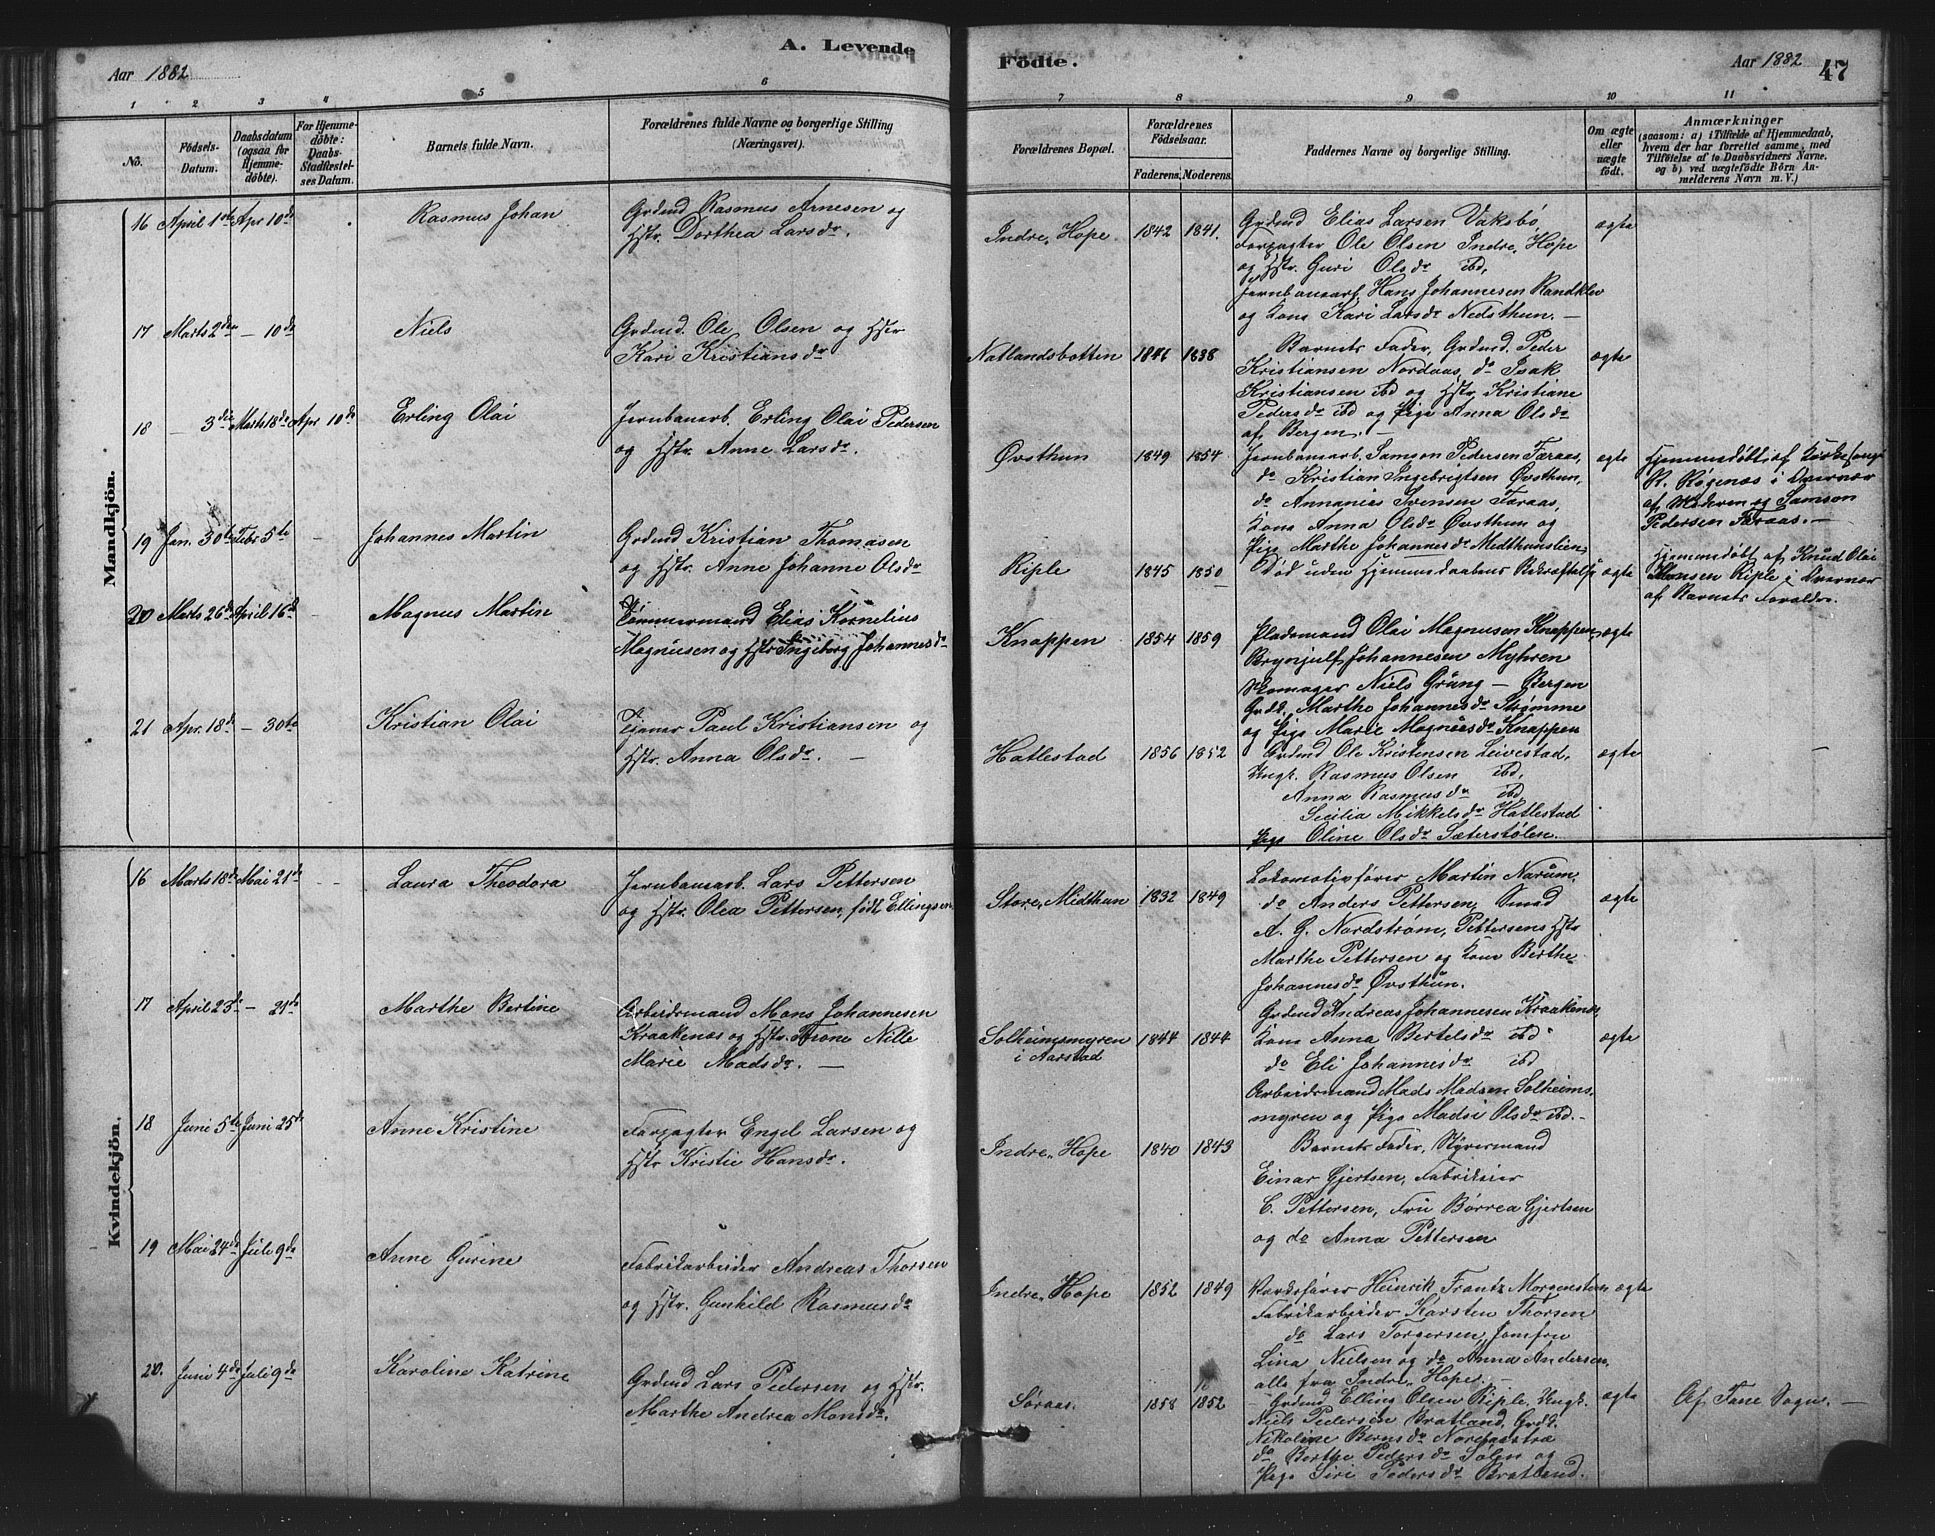 Aar 1882
A. Levende
Fødte.
Aar 1882
47
1 2 3 4 5 6 7 8 9 10 11
No.
Fødsels-
Datum.
Daabsdatum
(ogsaa for
Hjemme-
døbte).
For Hjemme-
døbte:
Daabs-
Stadfæstel-
ses Datum.
Barnets fulde Navn.
Forældrenes fulde Navne og borgerlige Stilling
(Næringsvei).
Forældrenes Bopæl.
Forældrenes
Fødselsaar.
Faderens. Moderens.
Faddernes Navne og borgerlige Stilling.
Om ægte
eller
uægte
født.
Anmærkninger
(saasom: a) i Tilfælde af Hjemmedaab,
hvem der har forrettet samme, med
Tilføielse af to Daabsvidners Navne,
og b) ved uægtefødte Børn An-
melderens Navn m. V.)
Mandkjön.
16 April 1ste Apr 10de
Rasmus Johan
Grdmd Rasmus Arnesen og
Hstr. Dorthea Larsdr.
Indre Hope 1842 1841.
Grdmd Elias Larsen Vaksbø,
Forpagter Ole Olsen Indre Hope
og Hstr. Guri Olsdr ibd,
Jernbanearb. Hans Johannesen Randklev
og Kone Kari Larsdr Nedsthun. —
ægte
17 Marts 2den — 10de
Niels
Grdmd. Ole Olsen og Hstr
Kari Kristiansdr
Natlandsbotten 1846 1838
Barnets Fader, Grdmd. Peder
Kristiansen Nordaas, do Isak
Kristiansen ibd og Hstr. Kristiane
Pedersdr ibd og Pige Anna Olsdr
af Bergen. —
ægte
18 — 3die Marts 18de Apr 10de
Erling Olai
Jernbanarb. Erling Olai Pedersen
og Hstr. Anne Larsdr.
Øvsthun 1849 1854
Jernbanearb. Samson Pedersen Færaas,
do Kristian Ingebrigtsen Øvsthun,
do Annanias Svensen Færaas,
Kone Anna Olsdr Øvsthun og
Pige Marthe Johannesdr Midthunslien,
ægte
Hjemmedøbt af Kirkesanger
R. Røgenæs i Overvær
af Moderen og Samson
Pedersen Færaas. —
19 Jan. 30te Febr 5te —
Johannes Martin
Grdmd Kristian Thomasen
og Hstr. Anne Johanne Olsdr
Riple 1845 1850
Død uden Hjemmedaabens Bekræftelse
ægte
Hjemmedøbt af Knud Olai
Hansen Riple i Overvær
af Barnets Forældre.
20 Marts 26de April 16de —
Magnus Martin
Tømmermand Elias Kornelius
Magnusen og Hstr Ingeborg Johannesdr
Knappen 1854 1859
Pladsmand Olai Magnusen Knappen,
Brynjulf Johannesen Myhren
Skomager Niels Grung — Bergen
Grdk. Marthe Johannesdr Strømme
og Pige Marie Magnusdr Knappen
ægte
21 Apr. 18de — 30te
Kristian Olai
Paul Kristiansen og
Hstr. Anna Olsdr. —
Hatlestad 1856 1852
Grdmd Ole Kristensen Leivestad,
Ungk. Rasmus Olsen ibd,
Anna Rasmusdr ibd
Sicilia Mikkelsdr Hatlestad
Pige Oline Olsdr Sæterstølen.
ægte —
Kvindekjön.
16 Marts 18de Mai 21de — —
Laura Theodora
Jernbanearb. Lars Pettersen
og Hstr. Olea Pettersen, født Ellingsen
Store Midthun 1832 1849
Lokomotivfører Martin Narum,
do Anders Pettersen, Smed
A. G. Nordstrøm, Pettersens Hstr
Marthe Pettersen og Kone Berthe
Johannesdr Øvsthun.
ægte
17 April 23de — 21de
Marthe Bertine
Arbeidsmand Mons Johannesen
Kraakenæs og Hstr. Trone Nille
Marie Madsdr. —
Solheimsmyren
i Aarstad
1844 1844
Grdmd Andreas Johannesen Kraakenæs,
Kone Anna Bertelsdr ibd
do Eli Johannesdr ibd
Arbeidsmand Mads Madsen Solheims-
myren og Pige Madsi Olsdr ibd. —
ægte
18 Juni 5te Juni 25de
Anne Kristine
Forpagter Engel Larsen og
Hstr Kristie Hansdr.
Indre Hope 1840 1843
Barnets Fader, Styrermand
Einar Gjertsen, Fabrikeier
C. Pettersen, Fru Børrea Gjertsen
og do Anna Pettersen
19 Mai 24de Juli 9de
Anne Gurine
Fabrikarbeider Andreas Thorsen
og Hstr. Gunhild Rasmusdr
Indre Hope 1852 1849
Værksfører Heinrik Frantz Morgenstern
Fabrikarbeider Karsten Thorsen
do Lars Torgersen, Jomfru
Lina Nielsen og do Anna Andersen,
alle fra Indre Hope. —
ægte
20. Juni 4de Juli 9de
Karoline Katrine
Grdmd Lars Pedersen og Hstr.
Marthe Andrea Monsdr.
Søraas. 1858 1852
Grdmd Elling Olsen Riple, Ungk.
Niels Pedersen Bratland, Grdk.
Nikoline Berns dr
do Berthe Pedersdr Solen og
Pige Siri Pedersdr Bratland.
ægte
Af Fane Sogn. —